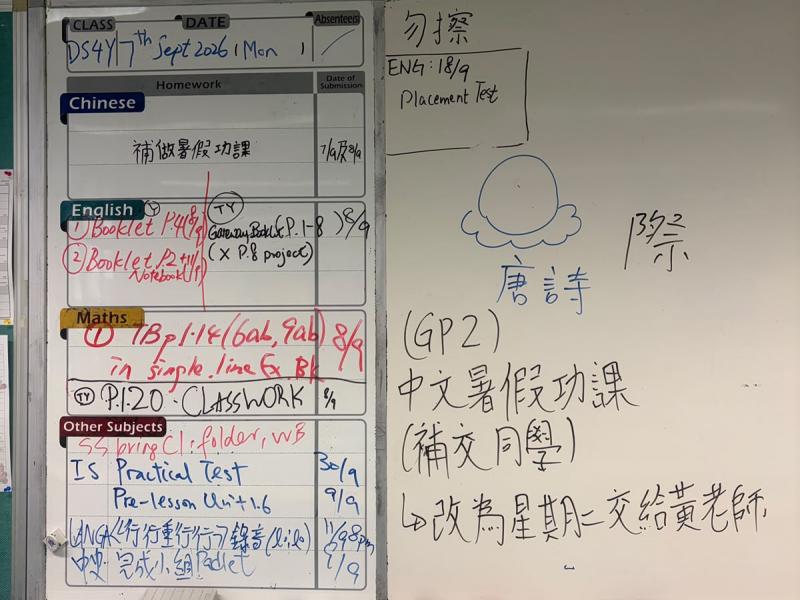 CLASS DATE Absentees
DS4Y 7th Sept 2026 (Mon)
Homework Date of Submission
Chinese
補做暑假功課 7/9及8/9
English
Y
① Booklet P.4 (8/9)
② Booklet P.2
Notebook
TY
Gateway Booklet (P.1-8) 8/9
(X P.8 project)
Maths
① TB p1.14 (6ab, 9ab) 8/9
in single line Ex. Bk
TY P.1.20 - CLASSWORK 8/9
Other Subjects
SS bring C1: folder, WB
IS Practical Test 30/9
Pre-lesson Unit 1.6 9/9
LANGA《行行重行行》錄音 11/9 8pm
中史 完成小組Padlet 9/9
勿擦
ENG: 18/9
Placement Test
唐詩
際
(GP2)
中文暑假功課
(補交同學)
↳ 改為星期二交給黃老師